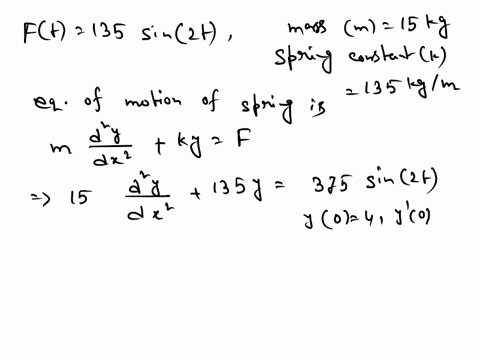 F(t) = 135 sin(2t), mass (m) = 15 kg
Spring constant (k) = 135 kg/m
eq. of motion of spring is
m d²y/dx² + ky = F
⇒ 15 d²y/dx² + 135y = 375 sin(2t)
y(0)=4, y'(0)